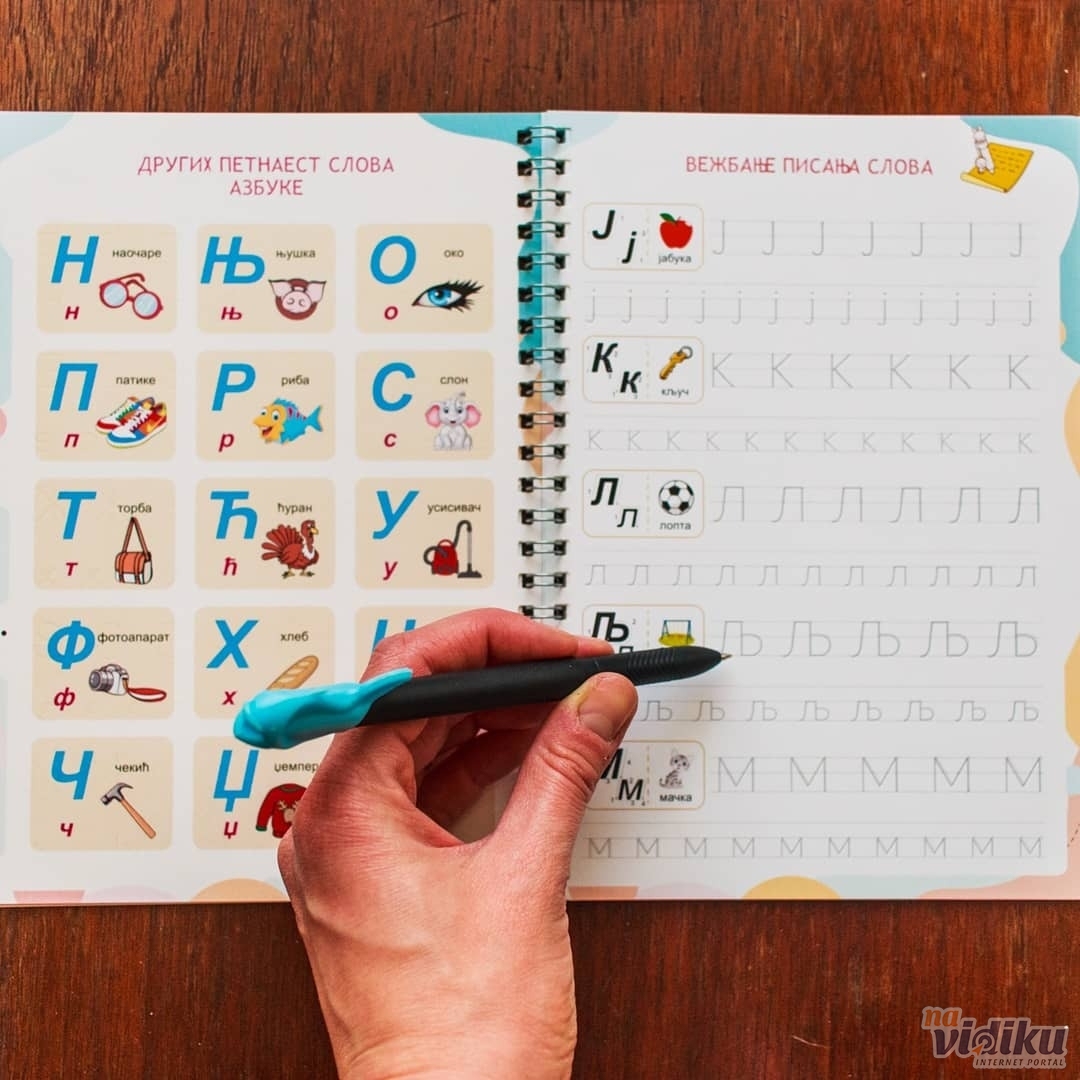 ДРУГИХ ПЕТНАЕСТ СЛОВА
АЗБУКЕ
Н наочаре
н
Њ њушка
њ
О око
о
П патике
п
Р риба
р
С слон
с
Т торба
т
Ћ ћуран
ћ
У усисивач
у
Ф фотоапарат
ф
Х хлеб
х
Ч чекић
ч
Џ џемпер
џ
ВЕЖБАЊЕ ПИСАЊА СЛОВА
Ј ј јабука
Ј Ј Ј Ј Ј Ј
ј ј ј ј ј ј ј ј ј ј
К к кључ
К К К К К К
к к к к к к к к к к к к
Л л лопта
Л Л Л Л Л Л
л л л л л л л л л л
Љ
Љ Љ Љ Љ Љ
љ љ љ љ љ љ љ љ
М м мачка
М М М М М
м м м м м м м м м м
na
vidiku
INTERNET PORTAL